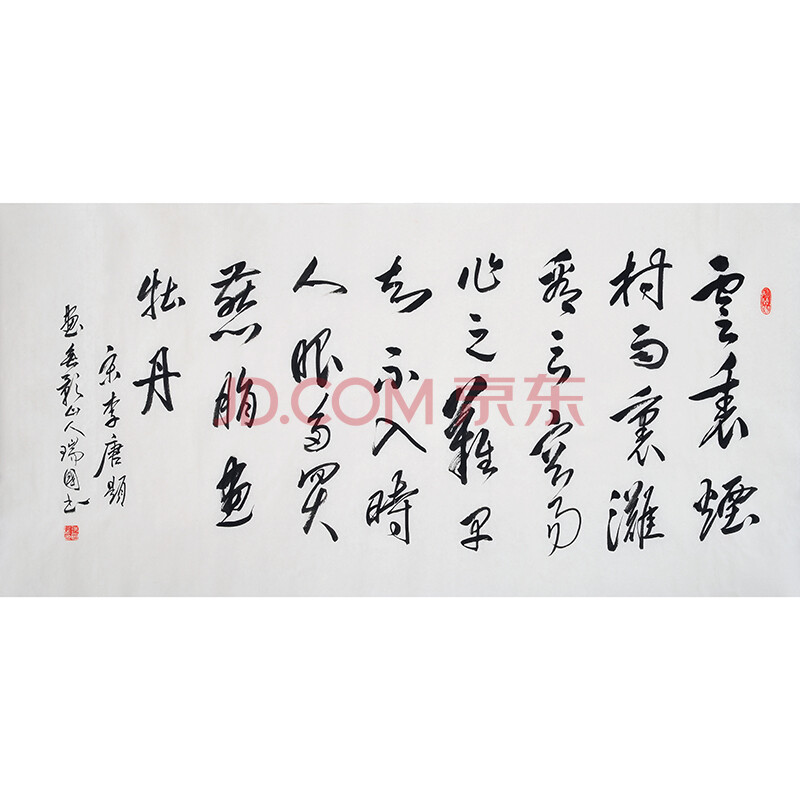 雲裏煙
村雨裏灘
看之容易
作之難早
知不入時
人眼多買
燕脂畫
牡丹
宋李唐題
畫無影山人瑞國書
JD.COM 京东